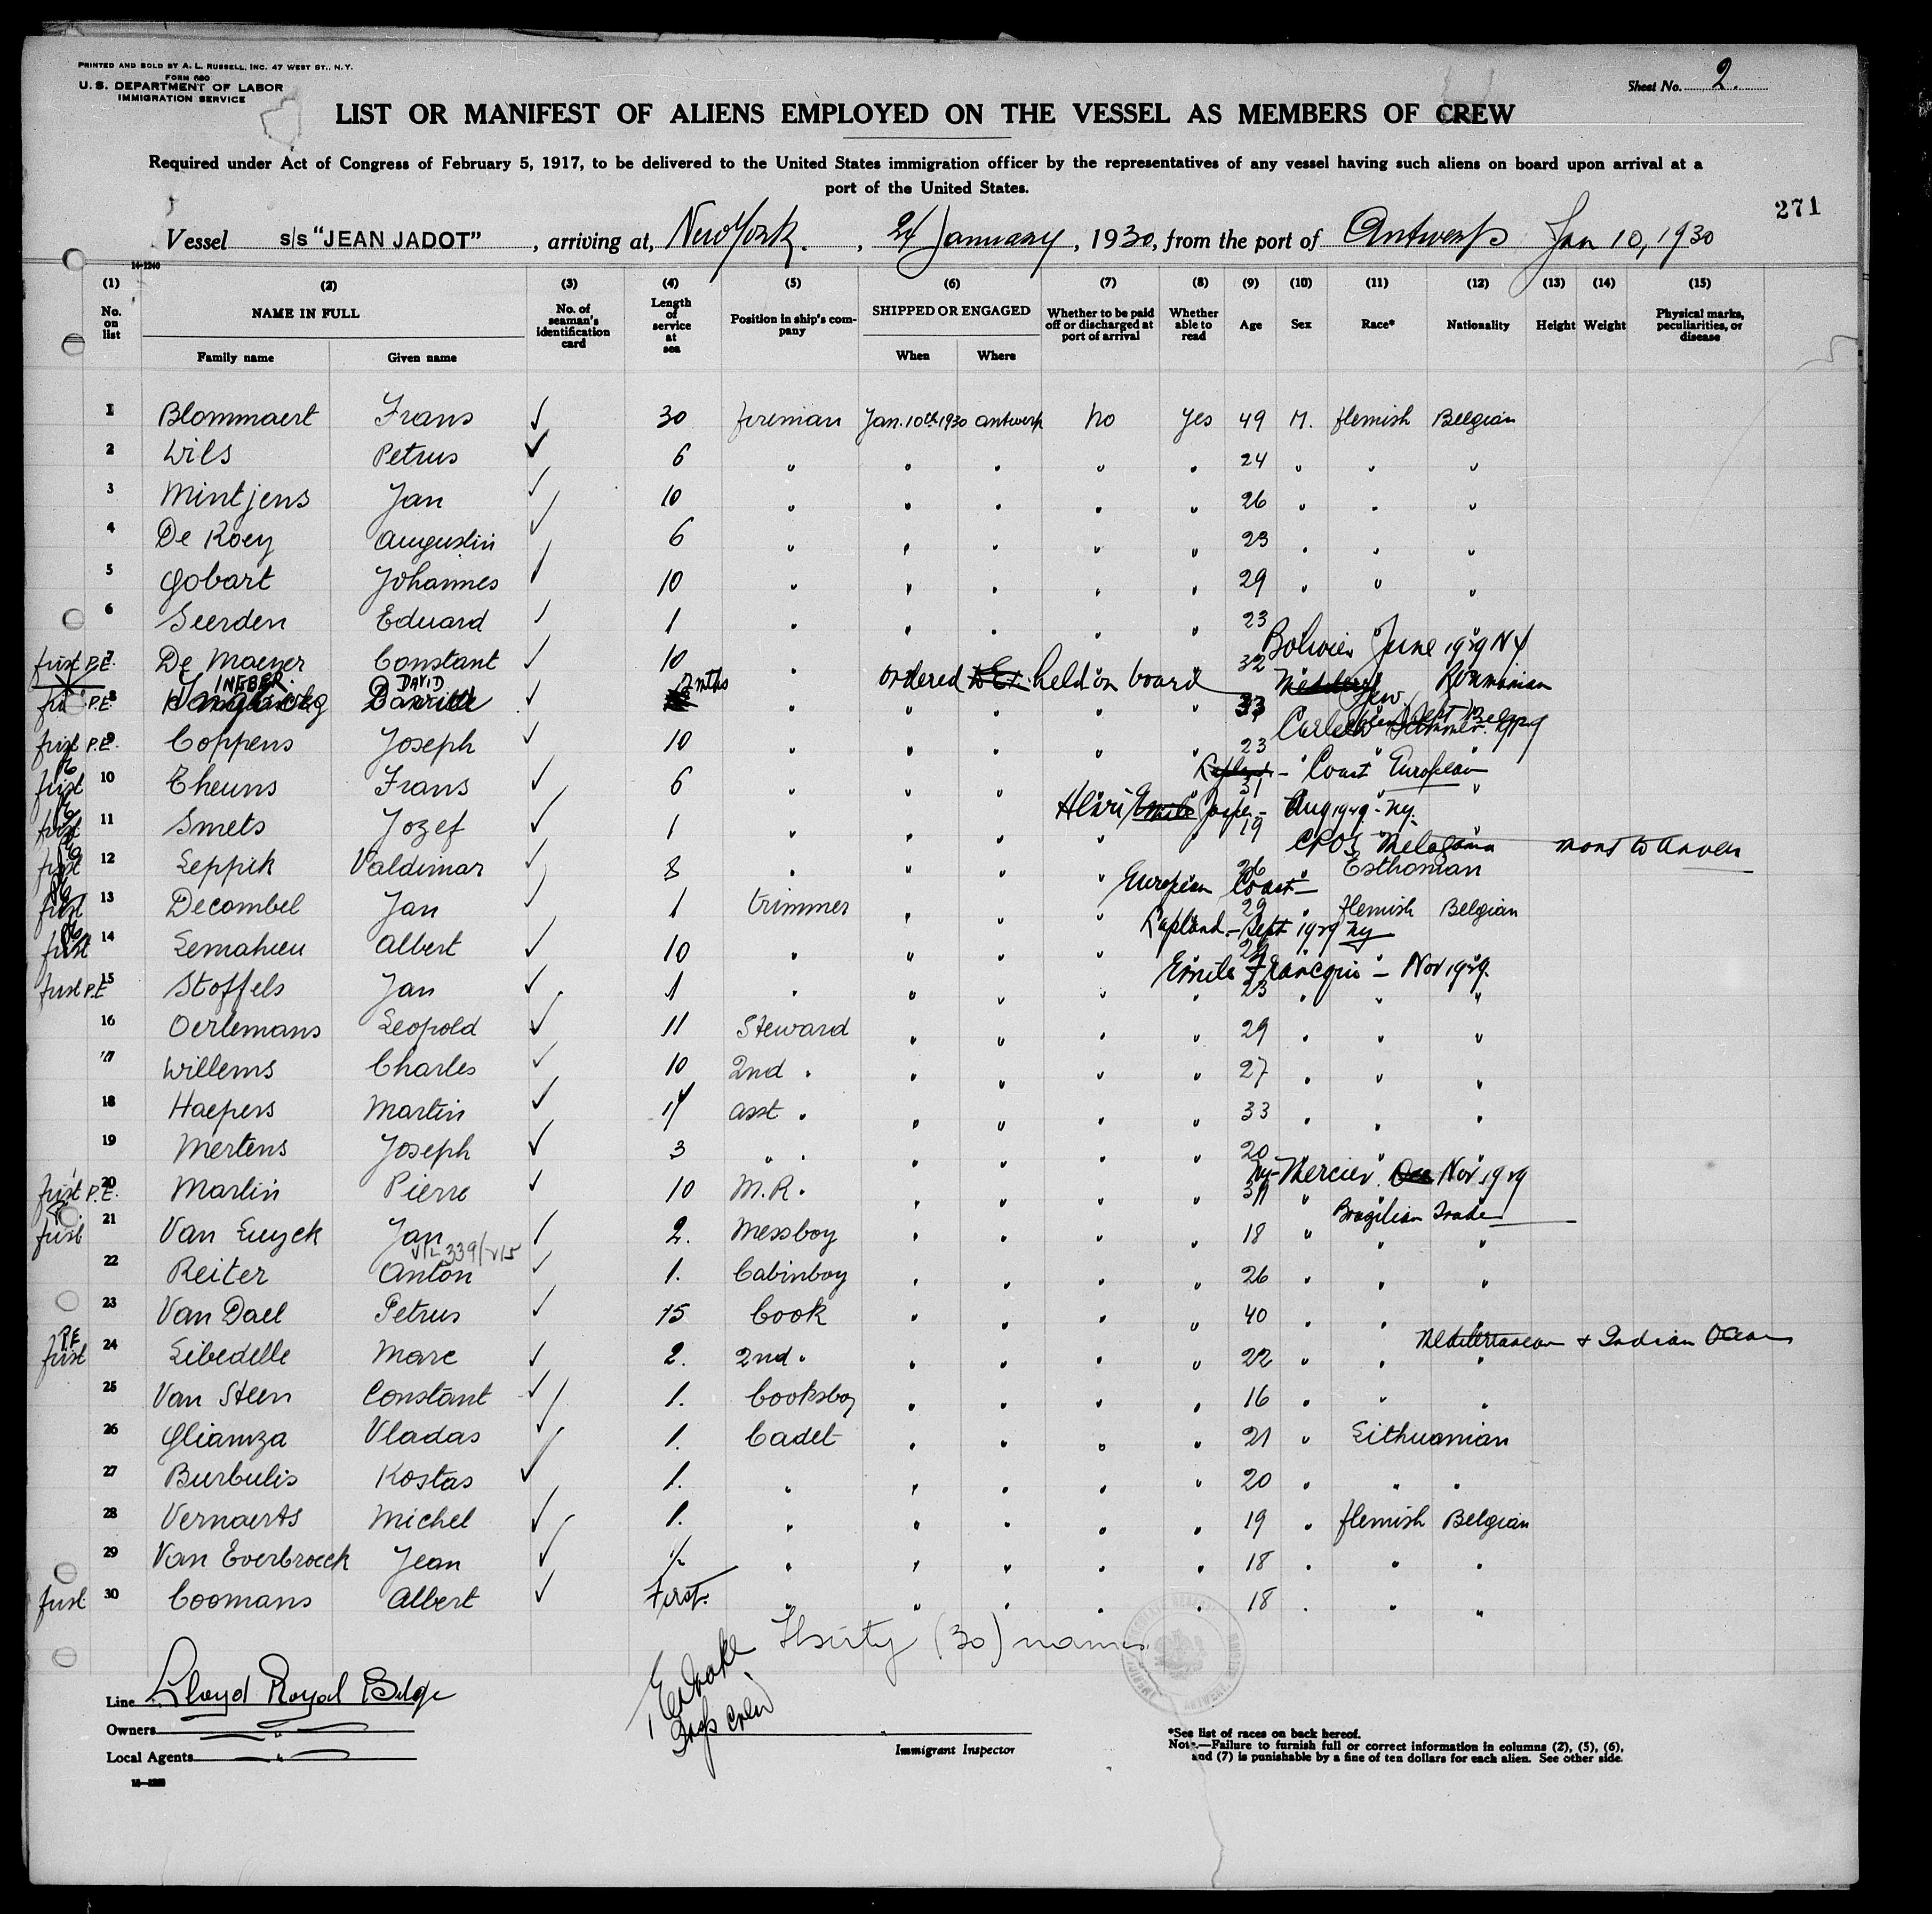 PRINTED AND SOLD BY A. L. RUSSELL, INC. 47 WEST ST., N.Y.
FORM 680
U. S. DEPARTMENT OF LABOR
IMMIGRATION SERVICE
Sheet No. 2.
LIST OR MANIFEST OF ALIENS EMPLOYED ON THE VESSEL AS MEMBERS OF CREW
Required under Act of Congress of February 5, 1917, to be delivered to the United States immigration officer by the representatives of any vessel having such aliens on board upon arrival at a
port of the United States.
271
Vessel s/s "JEAN JADOT", arriving at, New York., 24 January, 1930, from the port of Antwerp Jan 10, 1930
14-1240
(1) (2) (3) (4) (5) (6) (7) (8) (9) (10) (11) (12) (13) (14) (15)
No. on list NAME IN FULL No. of seaman's identification card Length of service at sea Position in ship's company SHIPPED OR ENGAGED Whether to be paid off or discharged at port of arrival Whether able to read Age Sex Race* Nationality Height Weight Physical marks, peculiarities, or disease
Family name Given name When Where
1 Blommaert Frans ✓ 30 fireman Jan. 10th 1930 Antwerp No Yes 49 M. flemish Belgian
2 Wils Petrus ✓ 6 " " " " " 24 " " "
3 Mintjens Jan ✓ 10 " " " " " 26 " " "
4 De Roey Augustin ✓ 6 " " " " " 23 " " "
5 Gobart Johannes ✓ 10 " " " " " 29 " " "
6 Seerden Eduard ✓ 1 " " " " " 23 " " "
Bolivier June 1929 NY
first P.E. 7 De Maeyer Constant ✓ 10 32
ordered held on board Roumanian
INGBER DAVID 2 mths Jew
P.E. 8 ✓ " " " " " 33
first P.E. 9 Coppens Joseph ✓ 10 " " " " " 23
Coast European
first 10 Theuns Frans ✓ 6 " " " " " 31 "
Henri Jaspar - Aug 1929 - NY.
first 11 Smets Jozef ✓ 1 " " " " " 19
CPOS Melogama Mont to Anvers
first 12 Leppik Valdimar ✓ 8 " " " " 26 " Esthonian
European Coast
first 13 Decombel Jan ✓ 1 trimmer " " " 29 " flemish Belgian
Lapland - Sept 1929 NY
first 14 Lemahieu Albert ✓ 10 " " " "
Emile Francqui - Nov 1929.
first P.E. 15 Stoffels Jan ✓ 1 " " " " " 23 " " "
16 Oerlemans Leopold ✓ 11 Steward " " " " 29 " " "
17 Willems Charles ✓ 10 2nd " " " " " 27 " " "
18 Haepers Martin ✓ 14 asst " " " " " 33 " " "
19 Mertens Joseph ✓ 3 " " " " " " 20 " " "
NY - Mercier. Nov 1929
first P.E. 20 Martin Pierre ✓ 10 M.R. " " " " 31 "
Brazilian Trade
first 21 Van Luyck Jan ✓ 2. Messboy " " " " 18 " " "
22 Reiter Anton ✓ 1. Cabinboy " " " " 26 " " "
23 Van Dael Petrus ✓ 15 Cook " " " " 40 " "
Mediterranean & Indian Ocean
P.E. first 24 Libedelle Marc ✓ 2. 2nd " " " " " 22 " " "
25 Van Steen Constant ✓ 1. Cooksboy " " " " 16 " " "
26 Gliamza Vladas ✓ 1. Cadet " " " " 21 " Lithuanian
27 Burbulis Kostas ✓ 1. " " " " " 20 " " "
28 Vernaerts Michel ✓ 1. " " " " " 19 " flemish Belgian
29 Van Everbroeck Jean ✓ " " " " " 18 " " "
first 30 Coomans Albert ✓ First. " " " " " 18 " " "
Thirty (30) names
Line Lloyd Royal Belge
Owners "
Local Agents "
Immigrant Inspector
*See list of races on back hereof.
Note.—Failure to furnish full or correct information in columns (2), (5), (6),
and (7) is punishable by a fine of ten dollars for each alien. See other side.